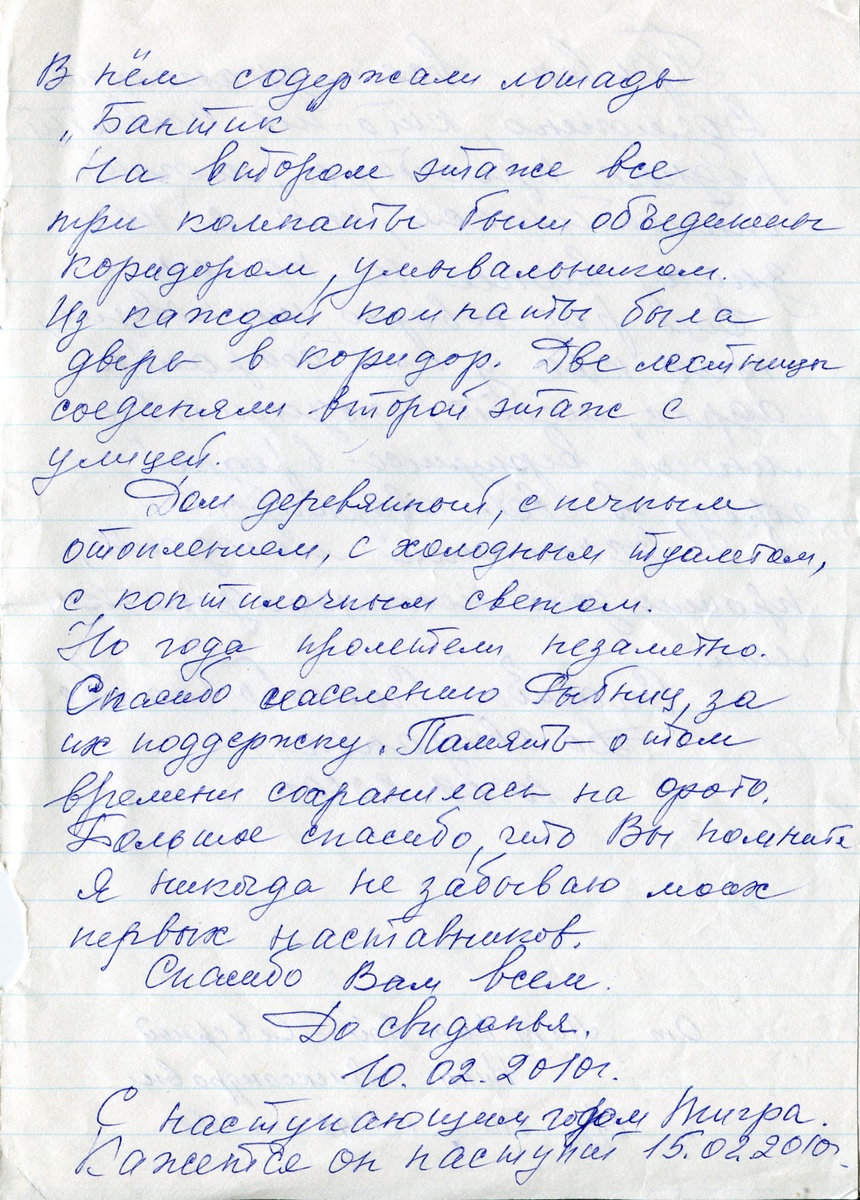 В нём содержали лошадь
„Бантик"
На втором этаже все
три комнаты были объеденины
коридором, умывальником.
Из каждой комнаты была
дверь в коридор. Две лестницы
соединяли второй этаж с
улицей.
Дом деревянный, с печным
отоплением, с холодным туалетом,
с коптилочным светом.
Но года пролетели незаметно.
Спасибо населению Рыбниц, за
их поддержку. Память о том
времени сохранилась на фото.
Большое спасибо, что Вы помните
Я никогда не забываю моих
первых наставников.
Спасибо Вам всем.
До свиданья.
10.02.2010г.
С наступающим годом Тигра.
Кажется он наступит 15.02.2010г.